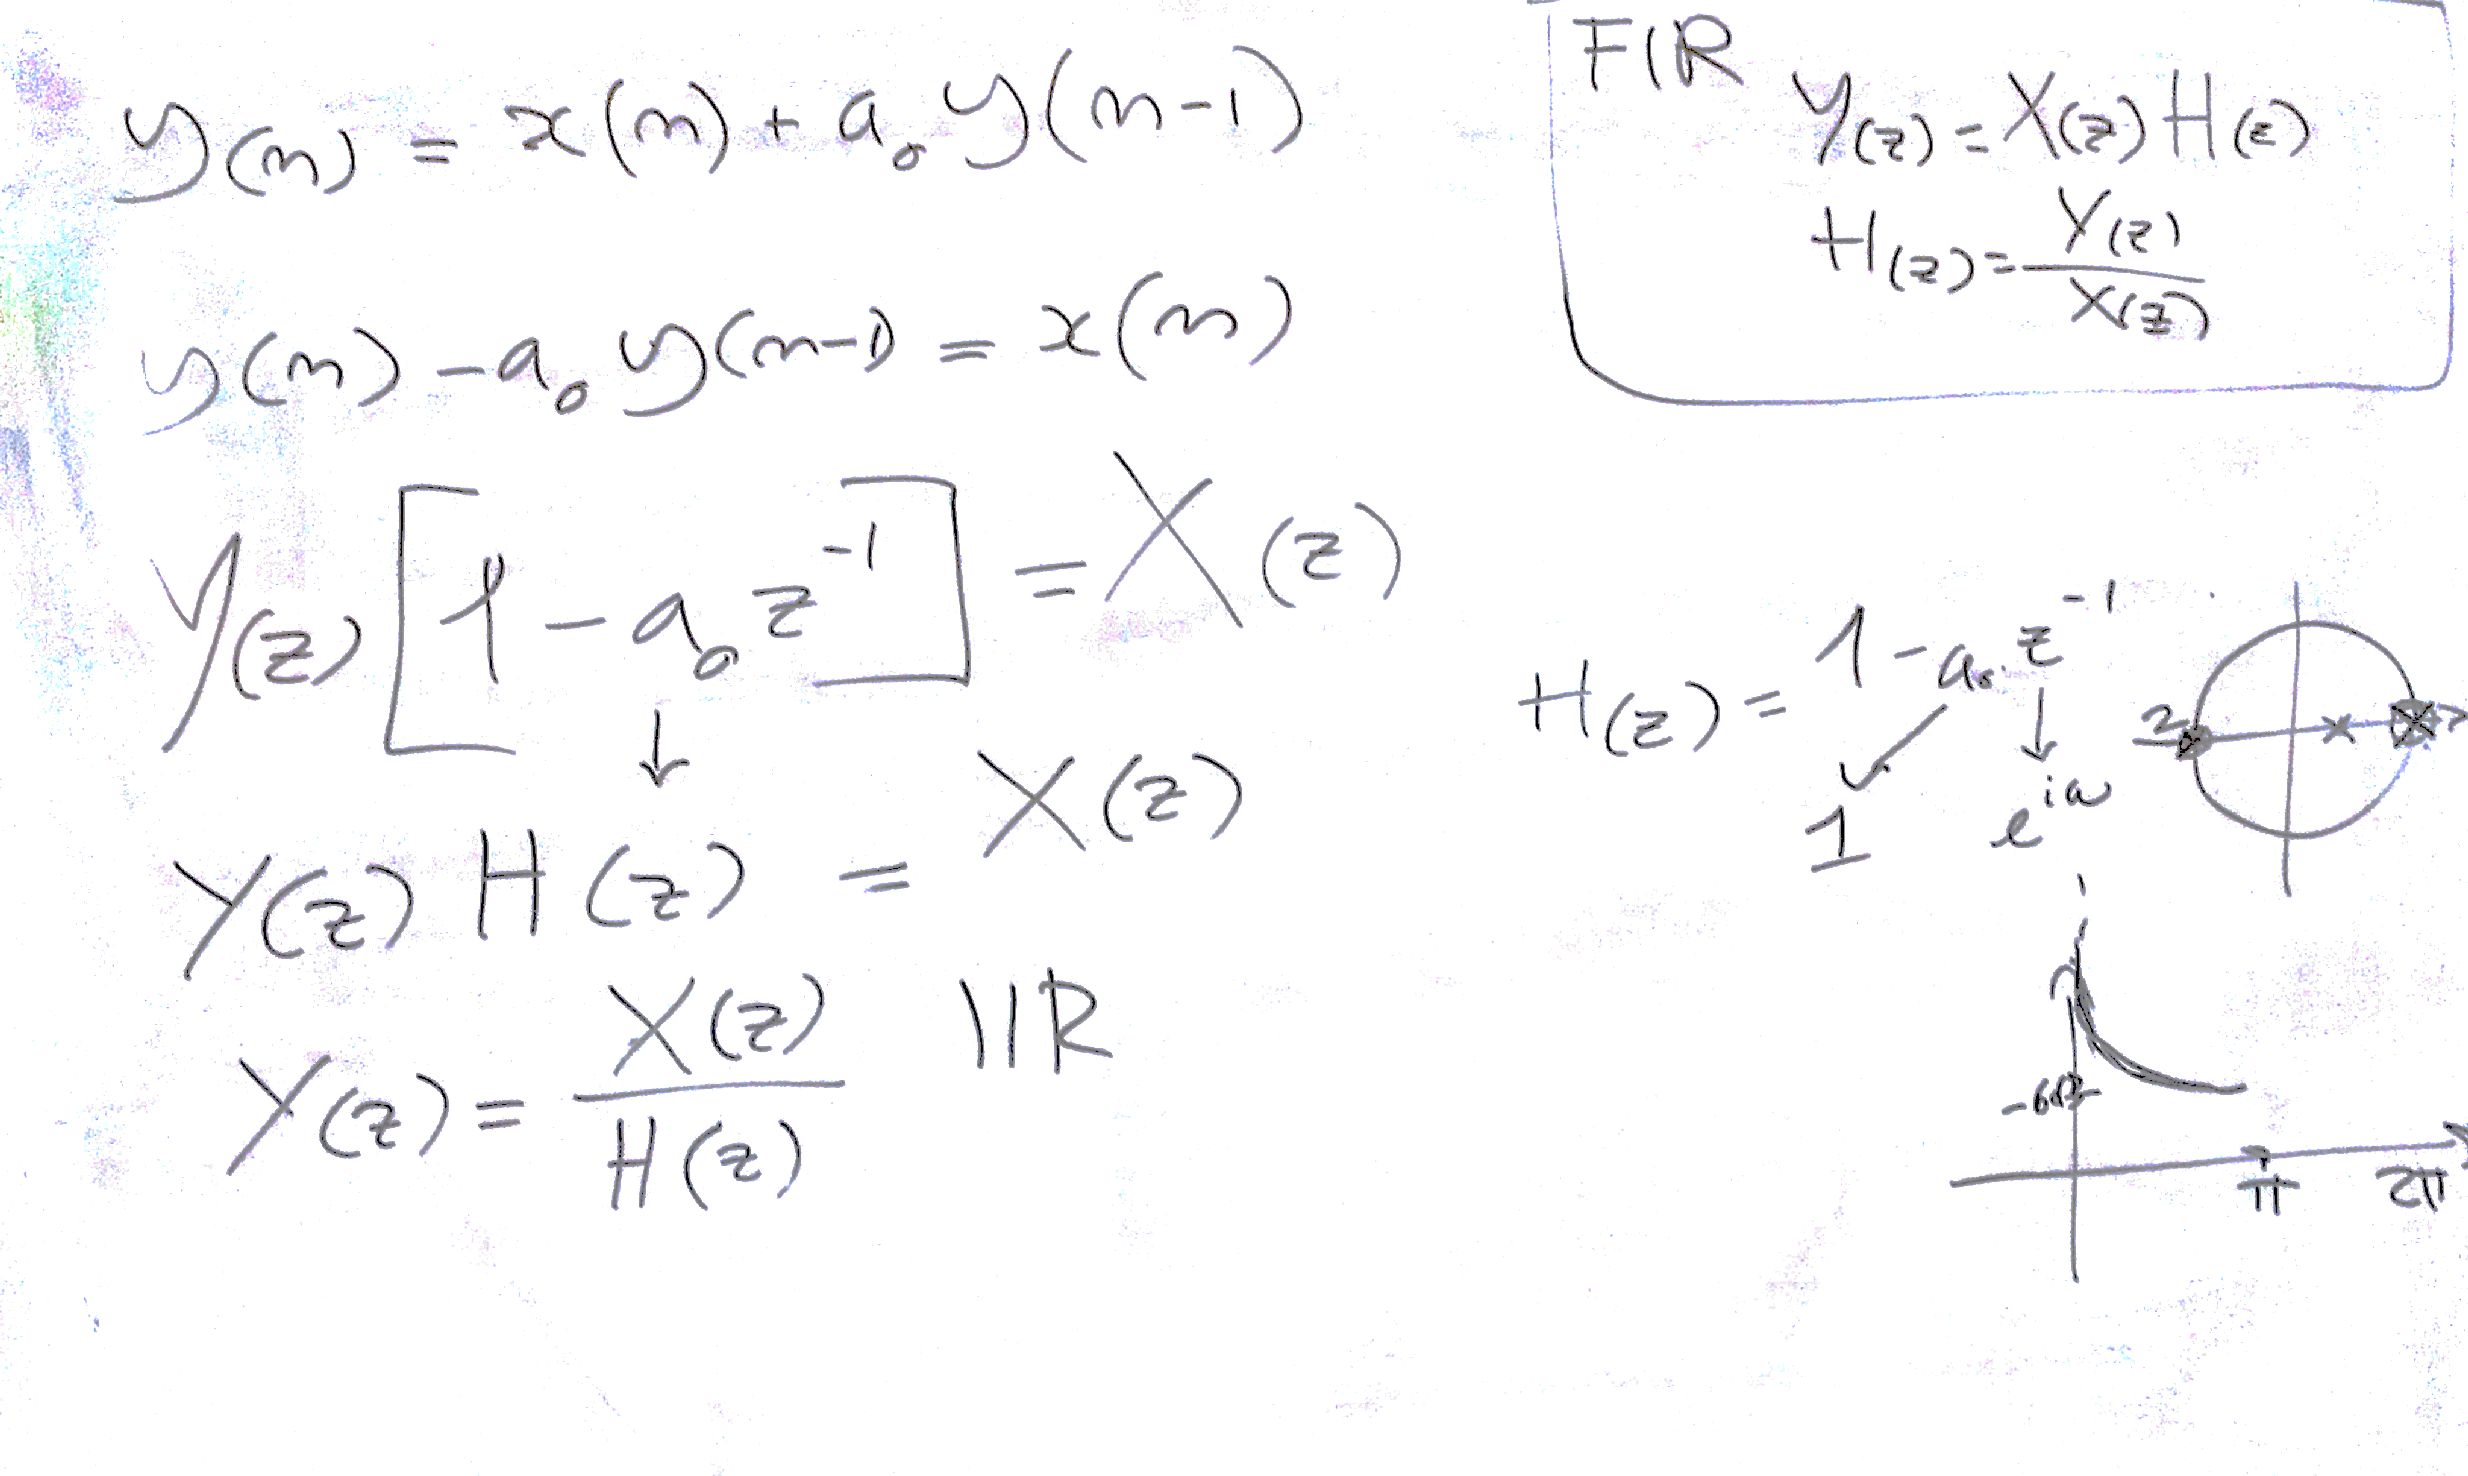 y(n) = x(n) + a₀ y(n-1)
y(n) - a₀ y(n-1) = x(n)
Y(z) [1 - a₀ z⁻¹] = X(z)
↓
Y(z) H(z) = X(z)
Y(z) = X(z) / H(z) IIR
FIR
Y(z) = X(z) H(z)
H(z) = Y(z) / X(z)
H(z) = 1 - a₀ z⁻¹
1
e^iω
2
-6dB
π 2π